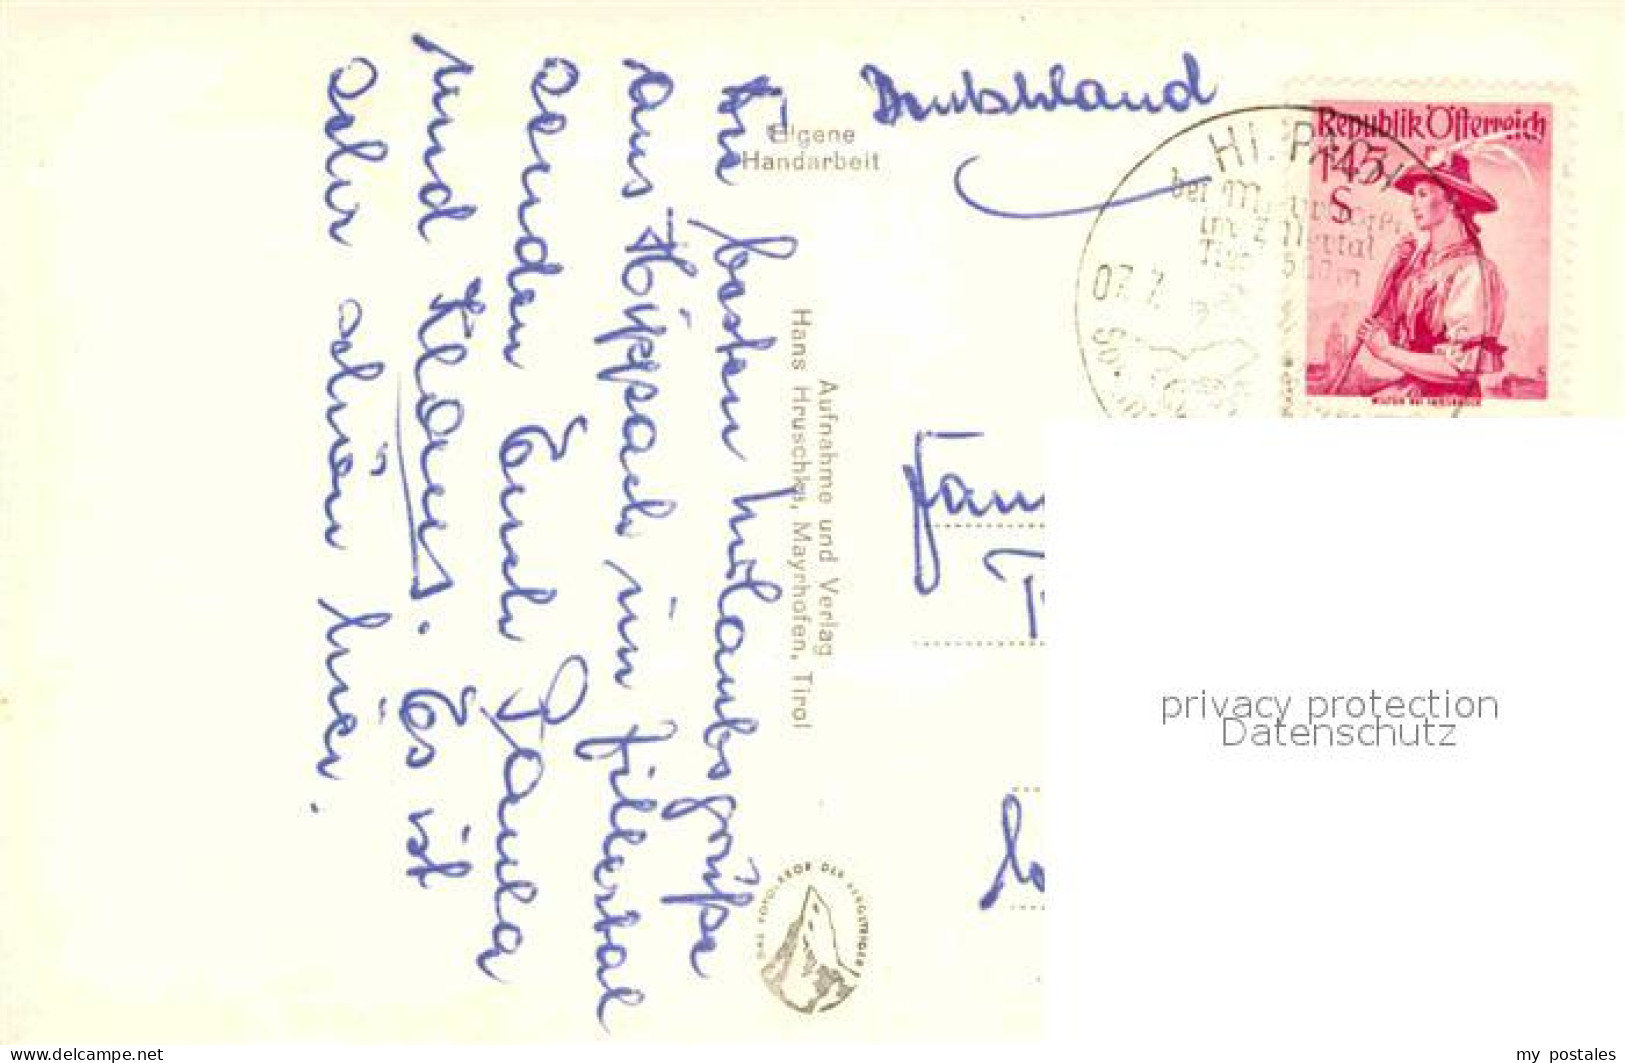 Deutschland
Eigene
Handarbeit
Republik Österreich
1.45
S
HIPPACH
bei Mayrhofen
im Zillertal
07. 7.
WILTEN BEI INNSBRUCK
Die besten Urlaubsgrüße
aus Hippach im Zillertal
senden Euch Paula
und Klaus. Es ist
sehr schön hier.
Aufnahme und Verlag
Hans Hruschka, Mayrhofen, Tirol
Fam
privacy protection
Datenschutz
www.delcampe.net
my_postales